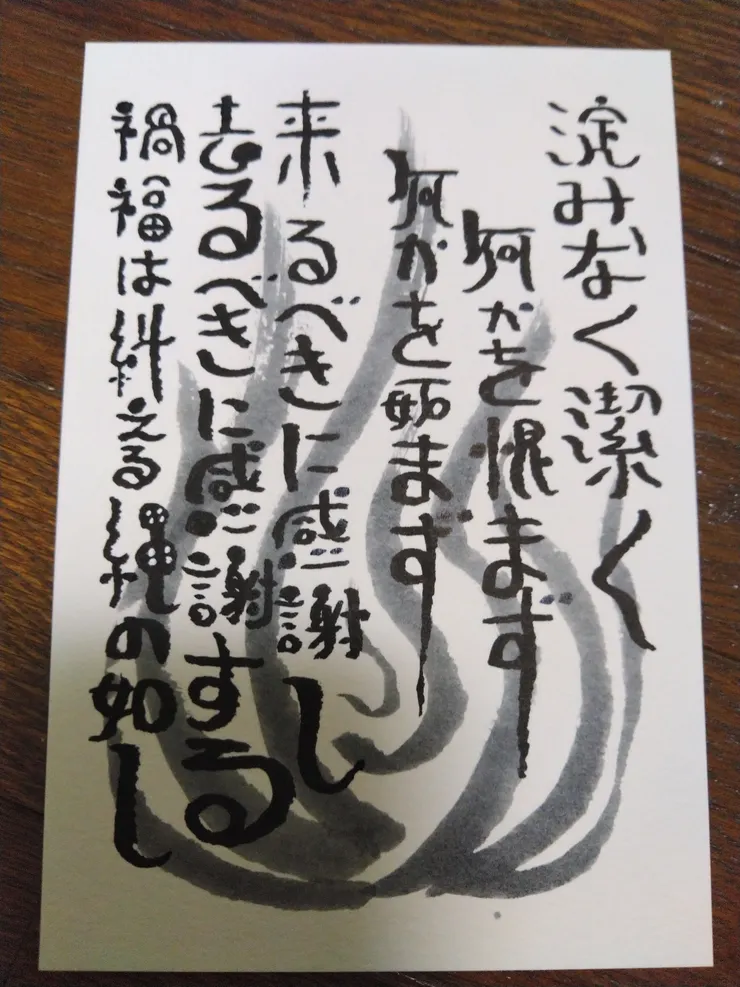 淀みなく潔く
何かを恨まず
何かを妬まず
来るべきに感謝し
去るべきに感謝する
禍福は糾える縄の如し